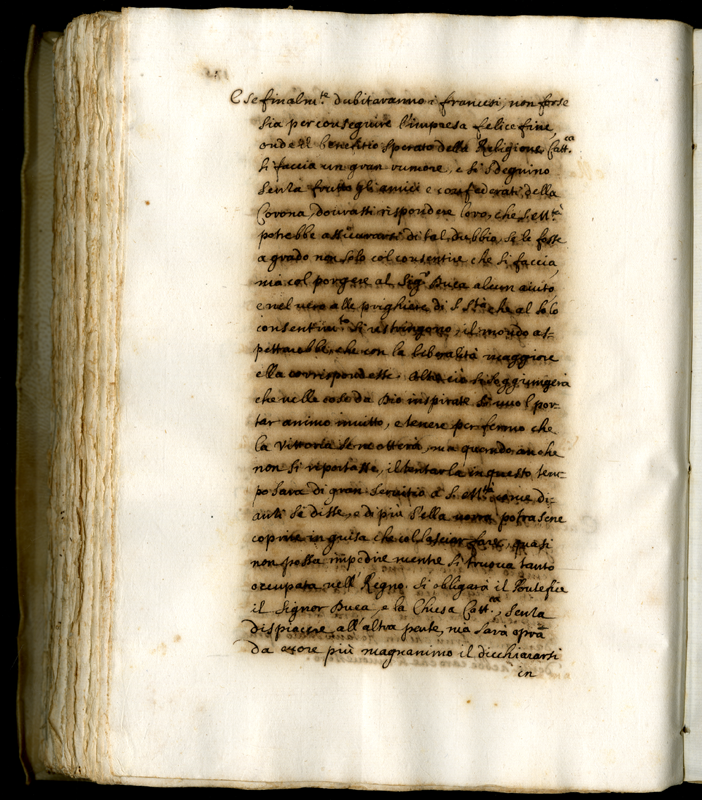 E se finalm.te dubitaranno i francesi, non forse
sia per conseguire l'impresa felice fine,
onde il benefitio sperato della Religione Catt.ca
si faccia un gran rumore, e si sdegnino
senza frutto gli amici e confederati della
Corona, dovrassi rispondere loro, che S. M.tà
potrebbe assicurarsi di tal dubbio, se le fosse
a grado non solo col consentire che si faccia,
ma col porgere al Sig.r Duca alcun aiuto,
e nel vero alle prighiere di S. S.tà che al solo
consentim.to si restringono, il mondo as-
pettarebbe, che con la liberalità maggiore
ella corrispondesse. si soggiungerà
che nelle cose da Dio inspirate si vuol por-
tar animo invitto, e tenere per fermo che
la vittoria se ne otterà, ma quando anche
non si riportasse, il tentarla in questo tem-
po sarà di gran servitio à S. M.tà come di-
anzi si disse, e di più s'ella vorrà potrassene
coprire in guisa che col lasciar fare, quasi
non possa impedire mentre si truova tanto
occupata nell' Regno. Si obligarà il Pontefice
il Signor Duca, e la Chiesa Catt.ca, senza
dispiacere all' altra parte, ma sarà opra
da core più magnanimo il dicchiararsi
in